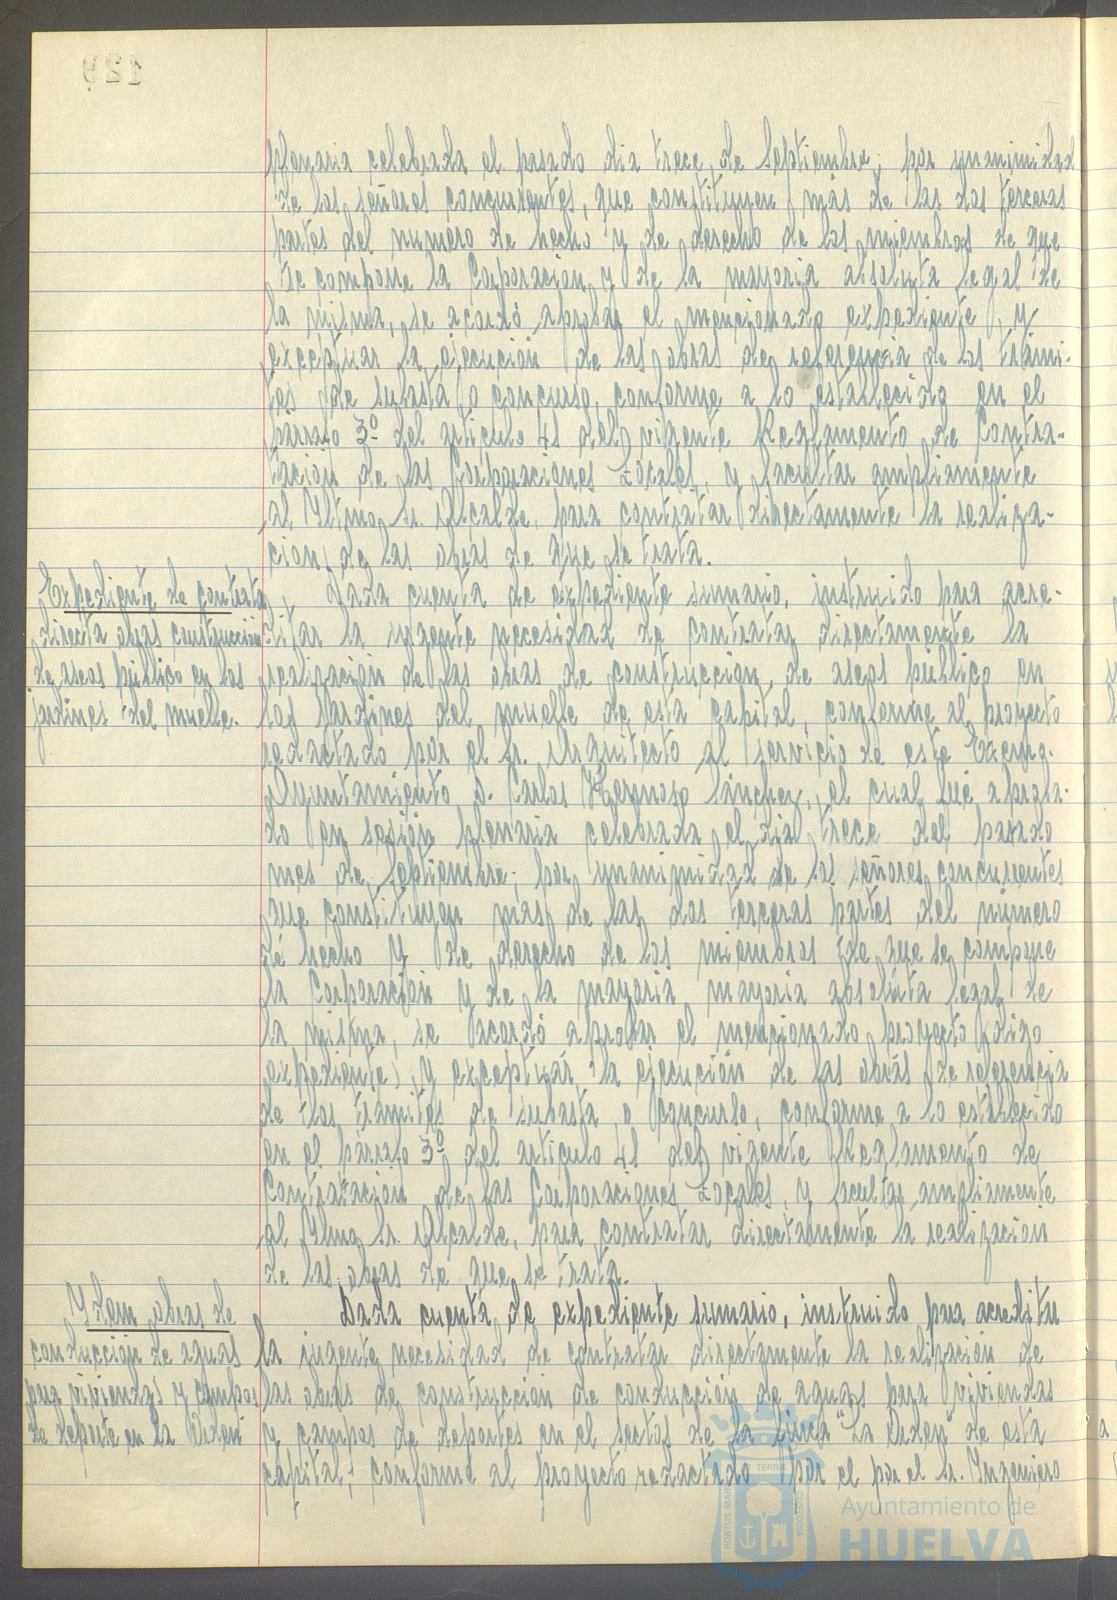 plenaria celebrada el pasado dia trece de Septiembre; por unanimidad
de los señores concurrentes, que constituyen más de las dos terceras
partes del numero de hecho y de derecho de los miembros de que
se compone la Corporación y de la mayoria absoluta legal de
la misma, se acordó aprobar el mencionado expediente, y
exceptuar la ejecución de las obras de referencia de los trámi-
tes de subasta o concurso, conforme a lo establecido en el
párrafo 3º del articulo 41 del vigente Reglamento de Contra-
tación de las Corporaciones Locales, y facultar ampliamente
al Iltmo. Sr. Alcalde, para contratar directamente la realiza-
ción de las obras de que se trata.
Expediente de contrata
directa obras construcción
de aseos público en los
jardines del muelle.
Dada cuenta de expediente sumario, instruido para acre-
ditar la urgente necesidad de contratar directamente la
realización de las obras de construcción de aseos público en
los Jardines del muelle de esta capital, conforme al proyecto
redactado por el Sr. Arquitecto al servicio de este Excmo.
Ayuntamiento D. Carlos Hermoso Sánchez, el cual fué aproba-
do en sesión plenaria celebrada el dia trece del pasado
mes de Septiembre; por unanimidad de los señores concurrentes
que constituyen mas de las dos terceras partes del número
de hecho y de derecho de los miembros de que se compone
la Corporación y de la mayoria mayoria absoluta legal de
la misma, se acordó aprobar el mencionado proyecto (digo
expediente), y exceptuar la ejecución de las obras de referencia
de los trámites de subasta o concurso, conforme a lo establecido
en el párrafo 3º del articulo 41 del vigente Reglamento de
Contratación de las Corporaciones Locales, y facultar ampliamente
al Iltmo Sr. Alcalde, para contratar directamente la realización
de las obras de que se trata.
Ydem obras de
conducción de aguas
para viviendas y campos
de deporte en La Orden
Dada cuenta de expediente sumario, instruido para acreditar
la urgente necesidad de contratar directamente la realización de
las obras de construcción de conducción de aguas para viviendas
y campos de deportes en el sector de la finca "La Orden" de esta
capital, conforme al proyecto redactado por el por el Sr. Ingeniero
PORTUS MARIS
TERRE
CUSTODIA
Ayuntamiento de
HUELVA